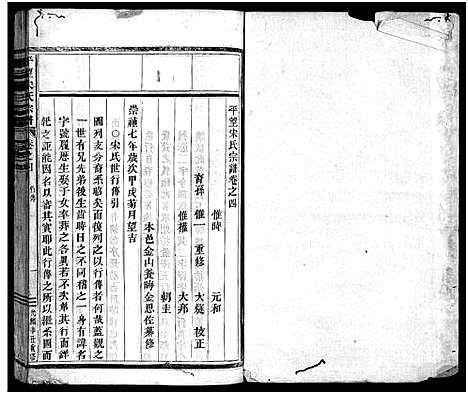 平望宋氏宗譜卷之四
惟時 元和
裔孫 惟一 重修 大 校正
惟權 大邦
朝圭
本邑金山養晦金恩佐纂修
崇禎七年歲次甲戌菊月望吉
○宋氏世行傳引
圖列支分膏系略矣而復列之以行傳者何哉蓋觀之
一世有兄先弟後生嘗時日之不同稽之一身有諱名
字號履歷生娶於女卒葬之各異若不次弟其行而詳
記之詎能因名以審其實耶此行傳之所以繼系圖而
平望宋氏宗譜
卷之四
行傳
一